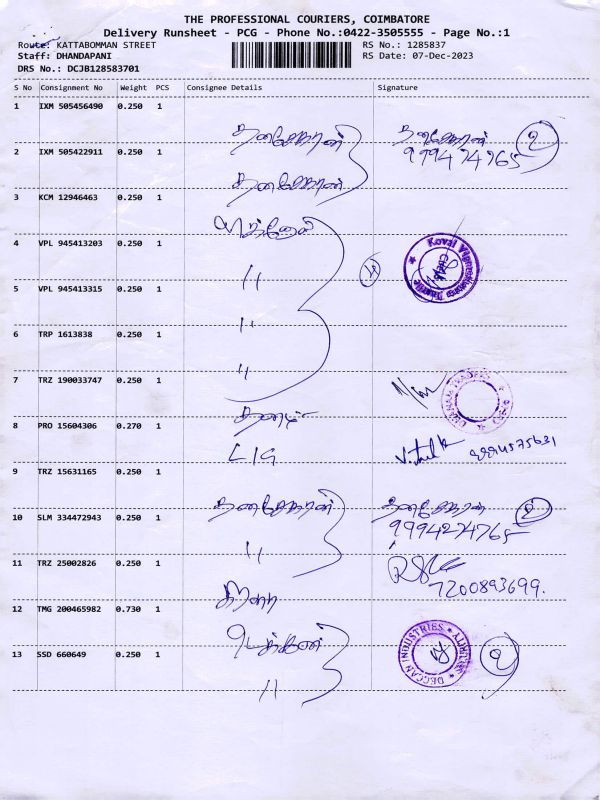 THE PROFESSIONAL COURIERS, COIMBATORE
Delivery Runsheet - PCG - Phone No.:0422-3505555 - Page No.:1
Route: KATTABOMMAN STREET
RS No.: 1285837
Staff: DHANDAPANI
RS Date: 07-Dec-2023
DRS No.: DCJB128583701
S No Consignment No Weight PCS Consignee Details Signature
1 IXM 505456490 0.250 1
தனசேகரன் தனசேகரன் 2
2 IXM 505422911 0.250 1
தனசேகரன்
3 KCM 12946463 0.250 1
4 VPL 945413203 0.250 1
" 4
5 VPL 945413315 0.250 1
"
6 TRP 1613838 0.250 1
"
7 TRZ 190033747 0.250 1
8 PRO 15604306 0.270 1
LIG
9 TRZ 15631165 0.250 1
தனசேகரன் தனசேகரன் 2
10 SLM 334472943 0.250 1
" 9994274765
11 TRZ 25002826 0.250 1
7200893699.
12 TMG 200465982 0.730 1
DECCAN INDUSTRIES 2
13 SSD 660649 0.250 1
"